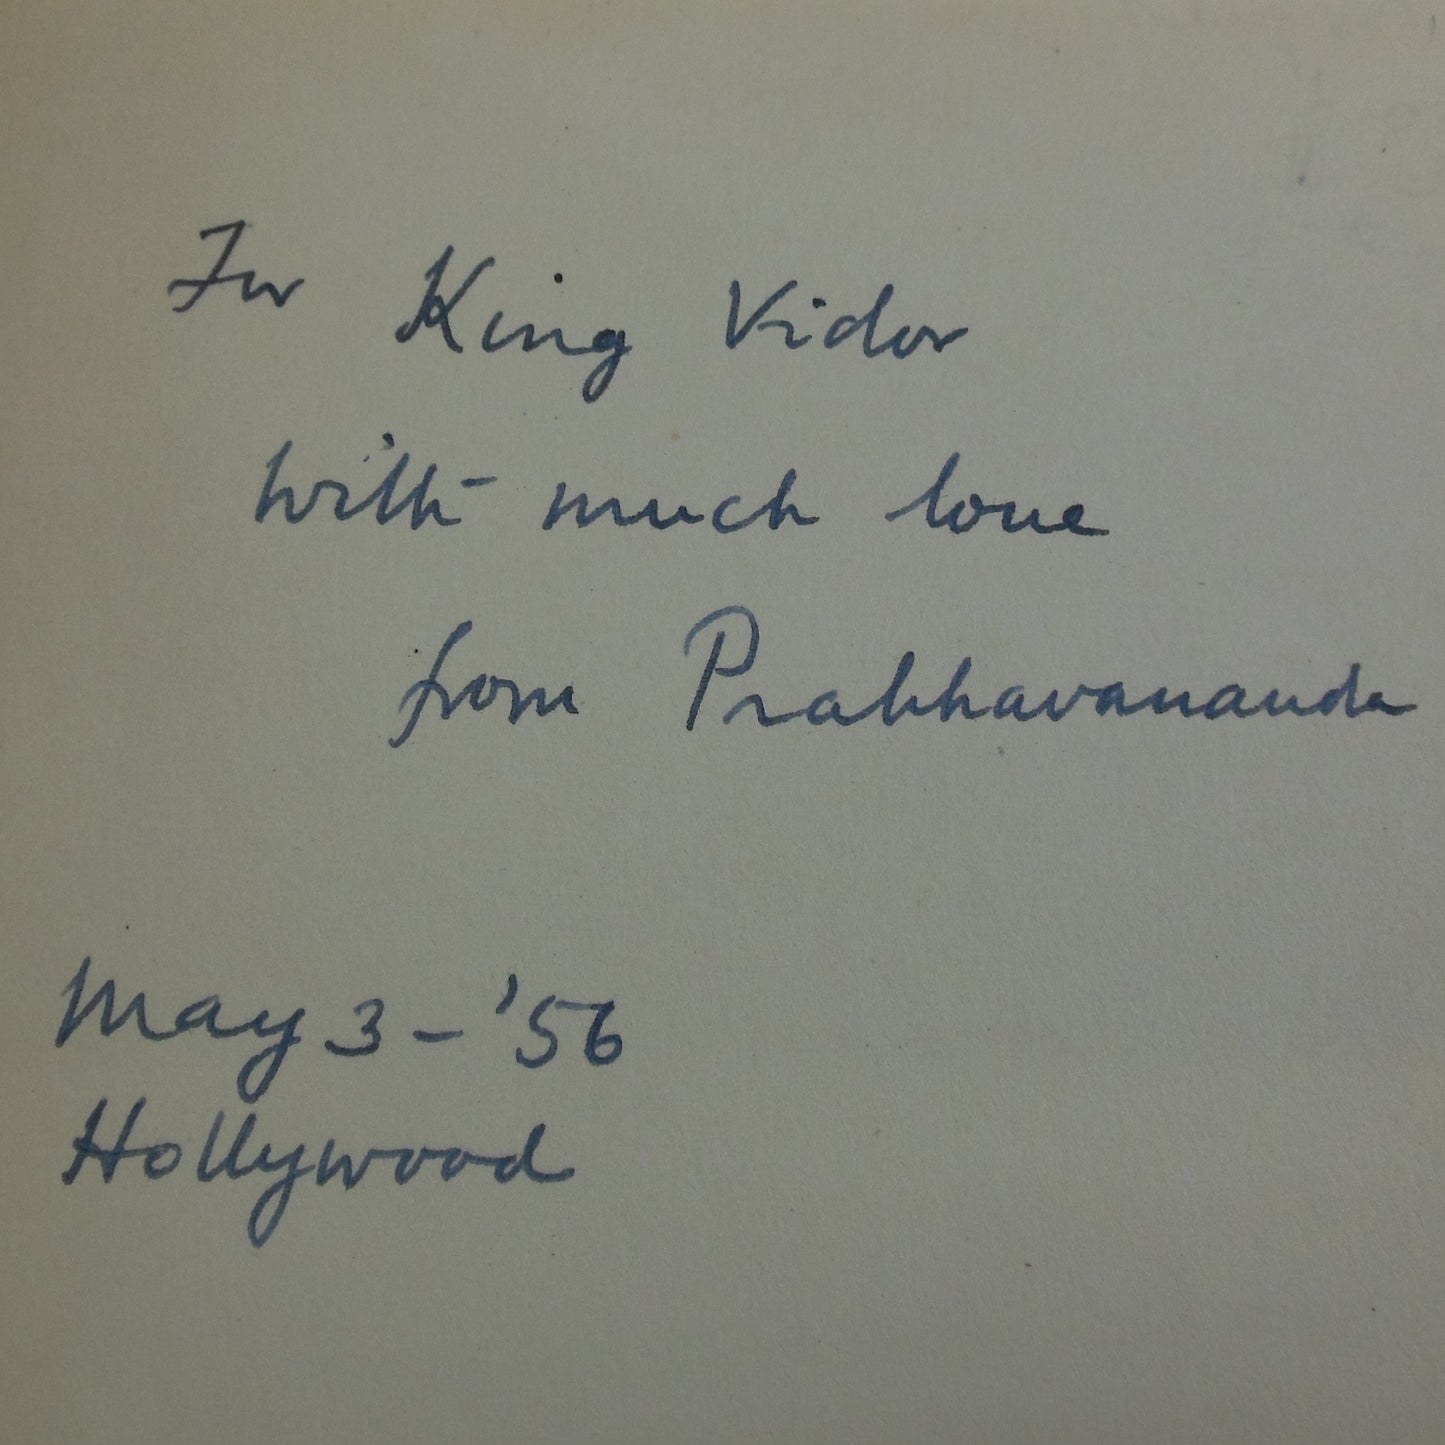 For King Vidor
with much love
from Prabhavananda
May 3 - '56
Hollywood